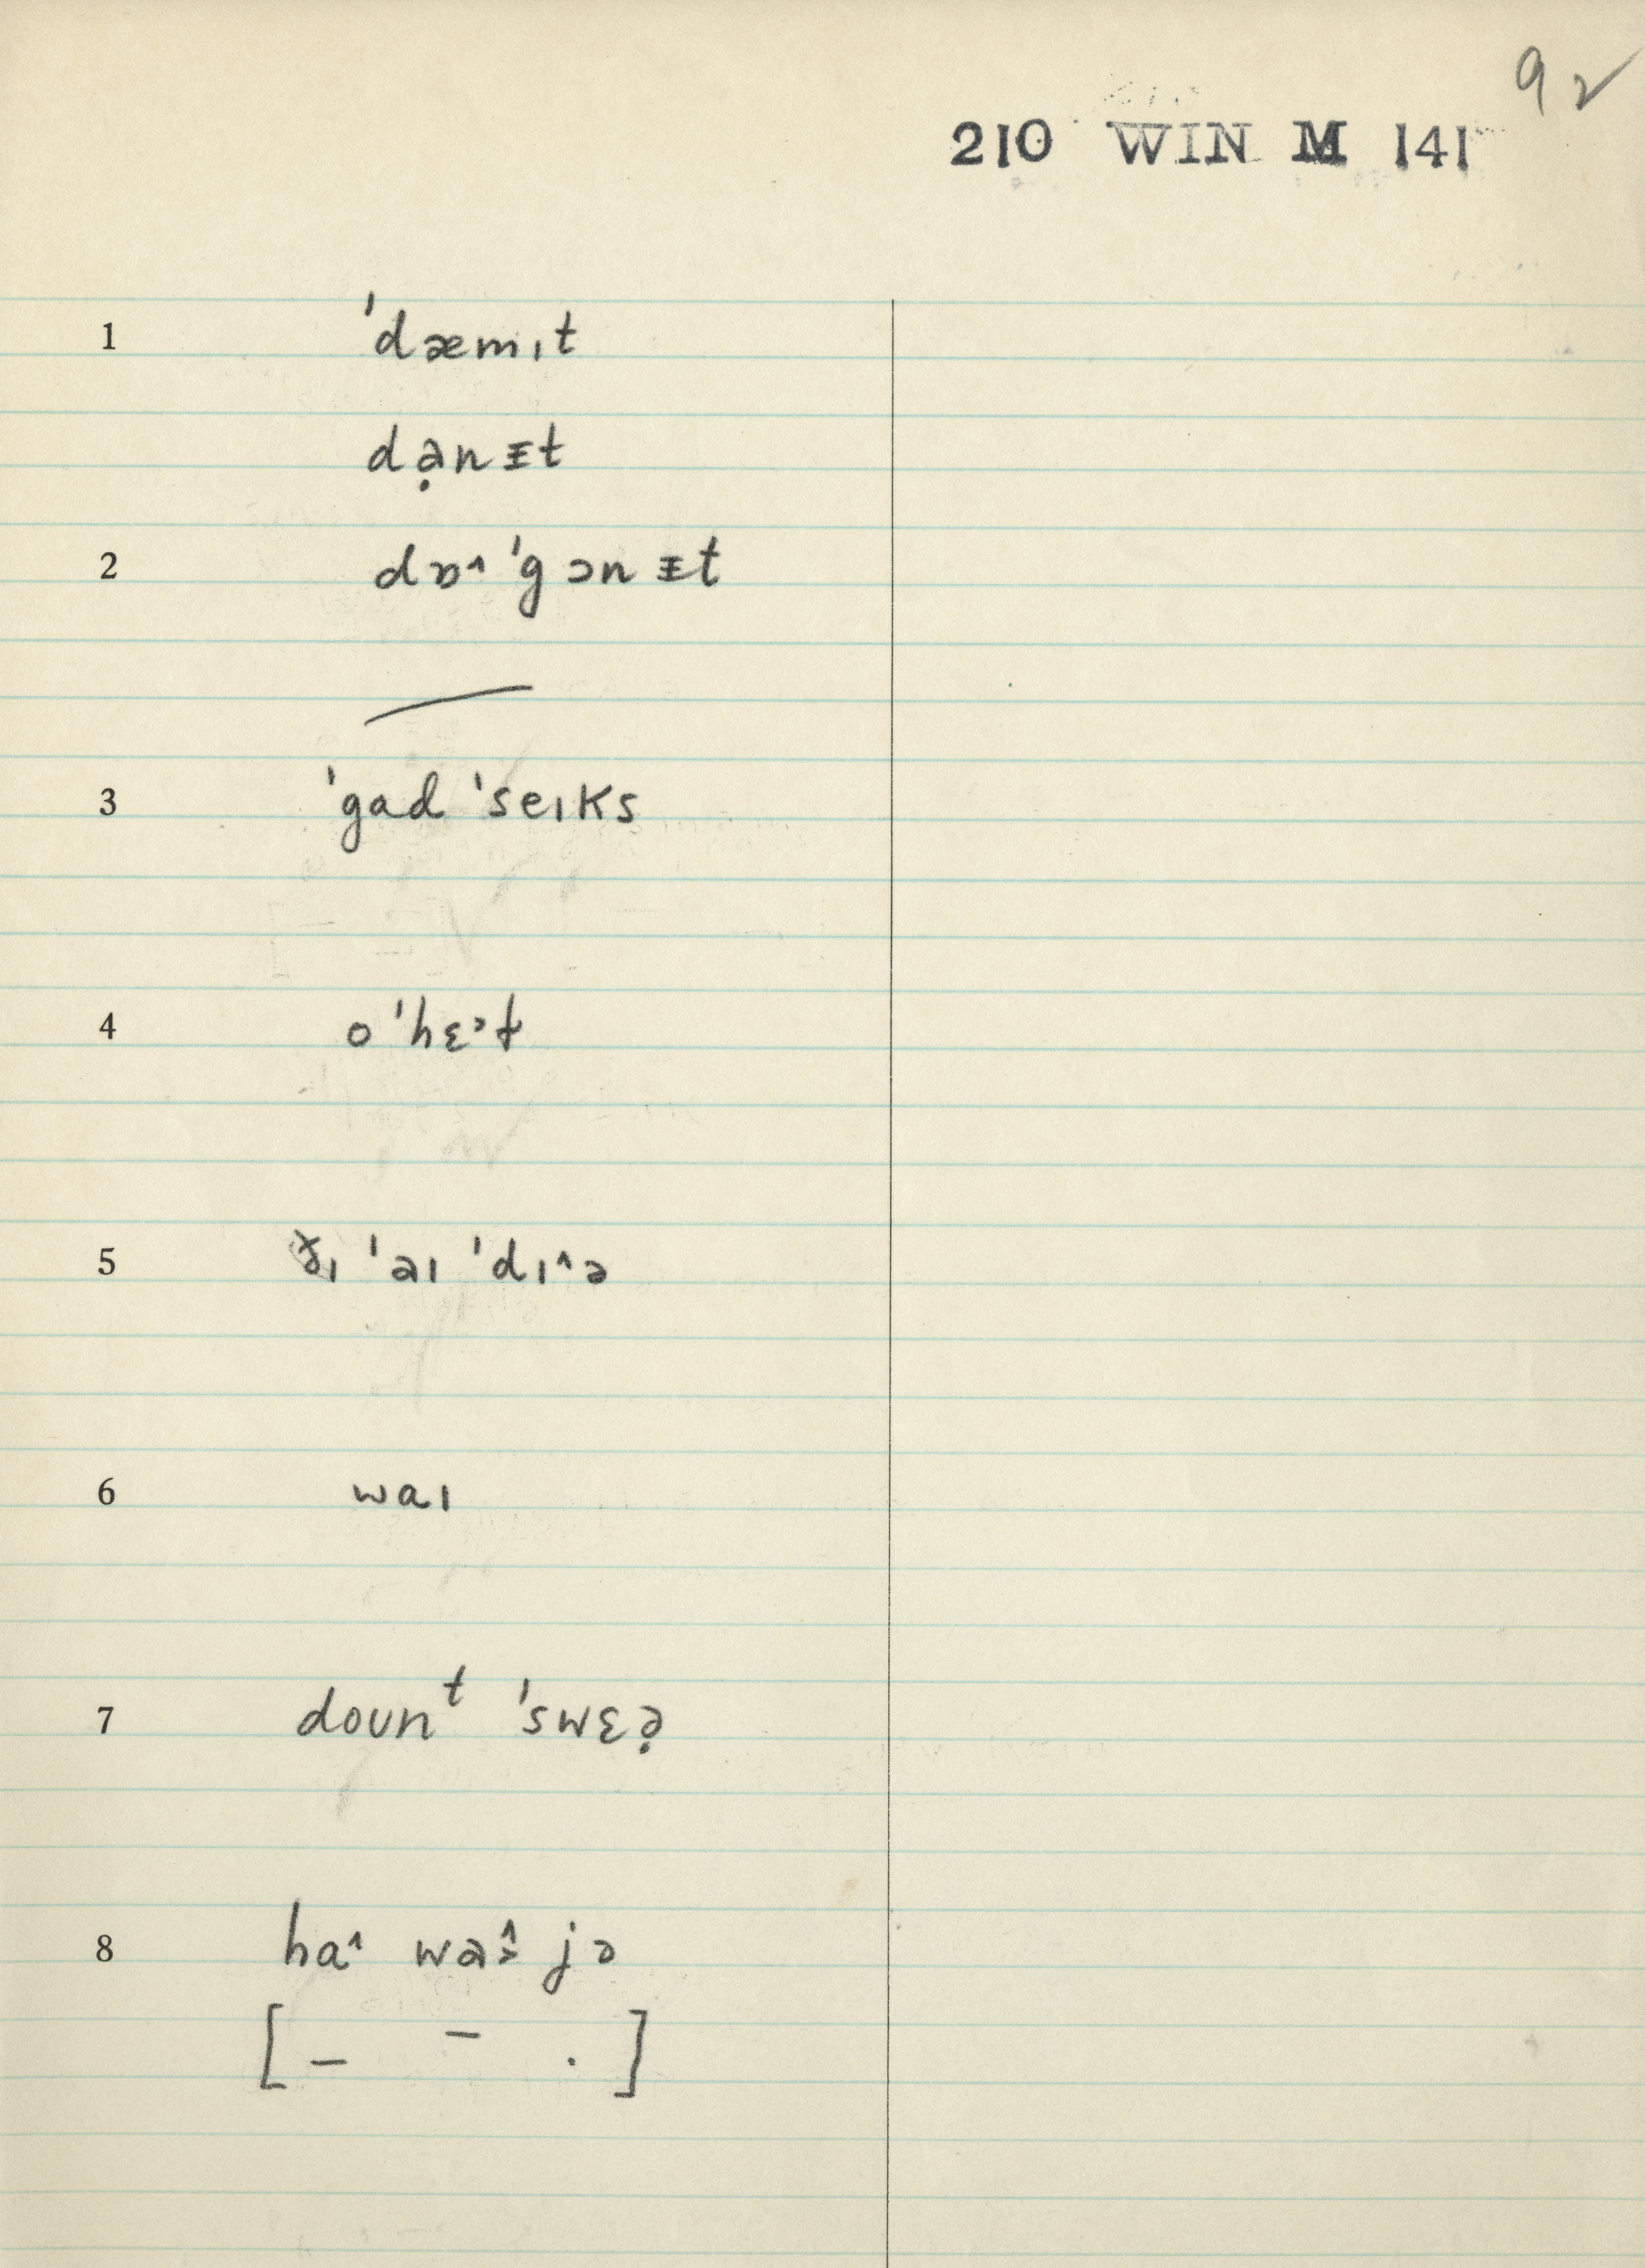 92
210 WIN M 141
1 ˈdæmɪt
də̣nᵻt
2 dɒ˄ ˈgɔnᵻt
3 ˈgad ˈseɪks
4 o ˈhɛ˒ɫ
5 ði ˈaɪ ˈdɪ˄ə
6 waɪ
7 doʊnᵗ ˈswɛə̣
8 ha˄ wa˄˒ jə
[ – – . ]